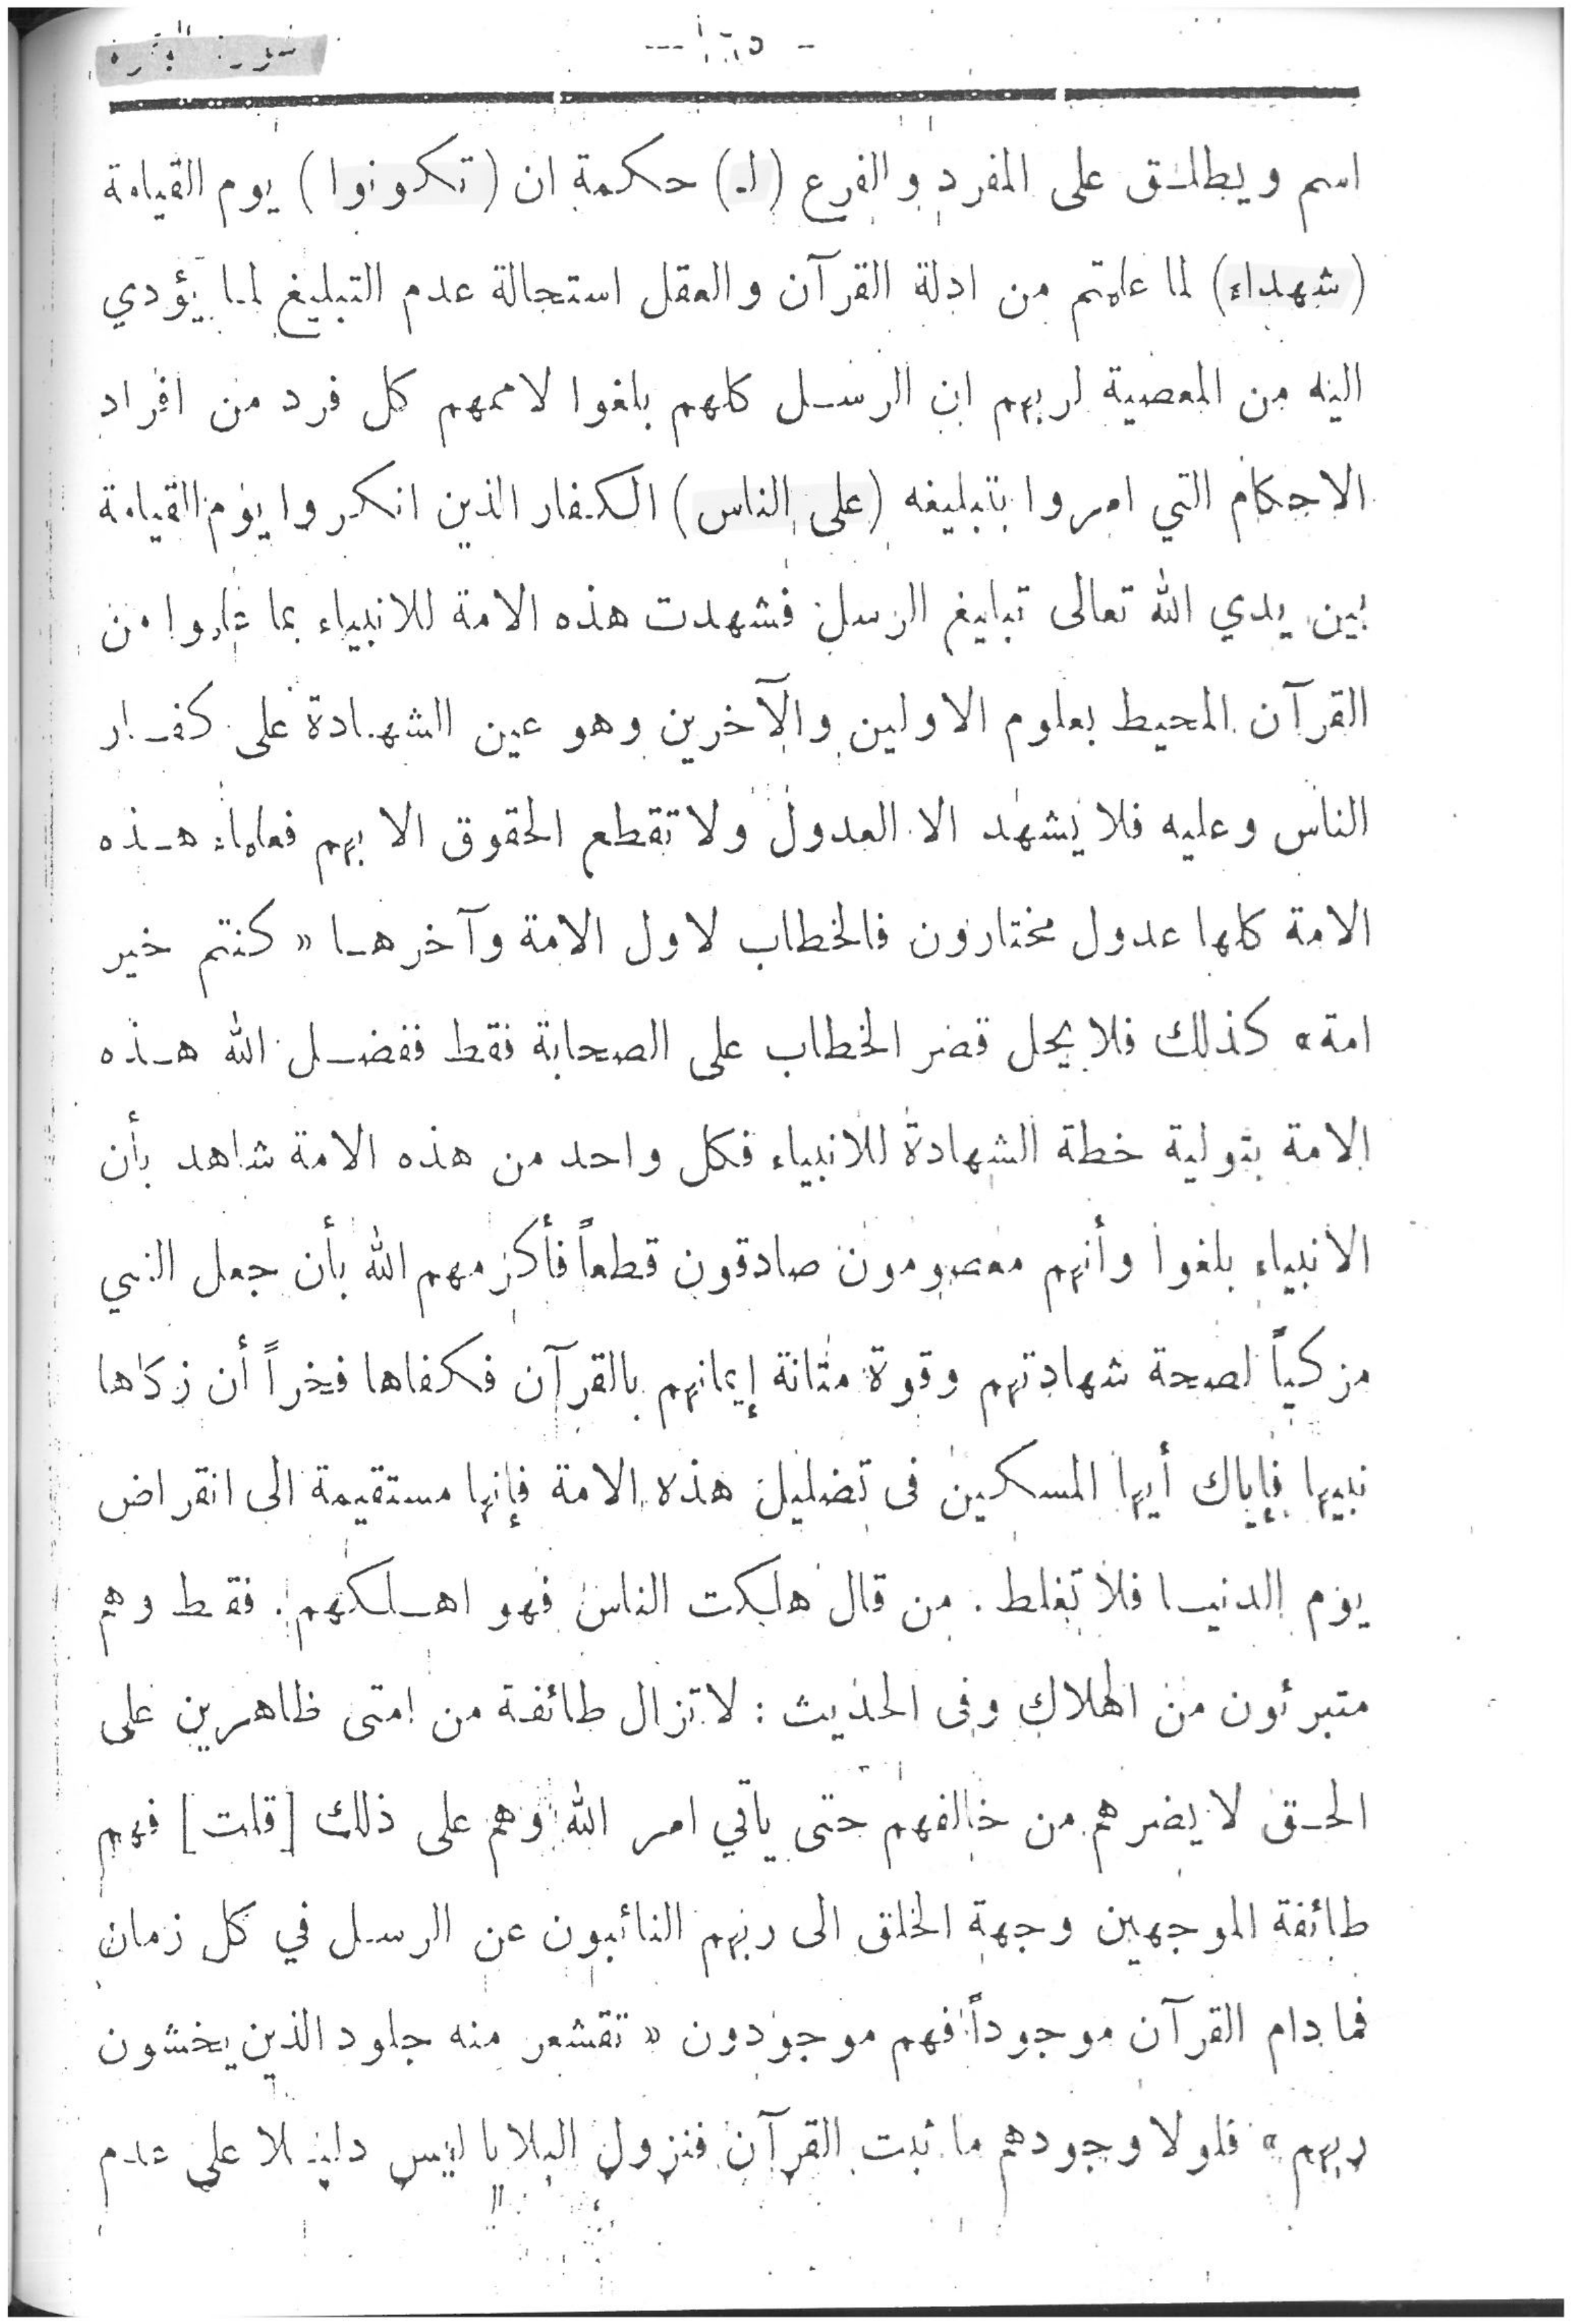 سورة البقرة
اسم ويطلق على المفرد والفرع (لـ) حكمة ان (تكونوا) يوم القيامة
(شهداء) لما علمتم من ادلة القرآن والعقل استحالة عدم التبليغ لما يؤدي
اليه من المعصية لربهم ان الرسل كلهم بلغوا لاممهم كل فرد من افراد
الاحكام التي امروا بتبليغه (على الناس) الكفار الذين انكروا يوم القيامة
بين يدي الله تعالى تبليغ الرسل فشهدت هذه الامة للانبياء بما علموا من
القرآن المحيط بعلوم الاولين والآخرين وهو عين الشهادة على كفار
الناس وعليه فلا يشهد الا العدول ولا تقطع الحقوق الا بهم فعلماء هذه
الامة كلها عدول مختارون فالخطاب لاول الامة وآخرها « كنتم خير
امة » كذلك فلا يحل قصر الخطاب على الصحابة فقط ففضل الله هذه
الامة بتولية خطة الشهادة للانبياء فكل واحد من هذه الامة شاهد بأن
الانبياء بلغوا وأنهم معصومون صادقون قطعاً فأكرمهم الله بأن جعل النبي
مزكياً لصحة شهادتهم وقوة متانة إيمانهم بالقرآن فكفاها فخراً أن زكاها
نبيها فإياك أيها المسكين فى تضليل هذه الامة فإنها مستقيمة الى انقراض
يوم الدنيا فلا تغلط . من قال هلكت الناس فهو اهلكهم . فقط وهم
متبرئون من الهلاك وفى الحديث : لا تزال طائفة من امتى ظاهرين على
الحق لا يضرهم من خالفهم حتى يأتي امر الله وهم على ذلك [قلت] فهم
طائفة الموجهين وجهة الخلق الى ربهم النائبون عن الرسل في كل زمان
فما دام القرآن موجوداً فهم موجودون « تقشعر منه جلود الذين يخشون
ربهم » فلولا وجودهم ما ثبت القرآن فنزول البلايا ليس دليلا على عدم